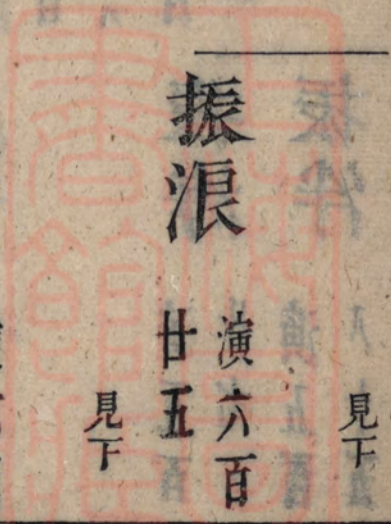 見下
振浪
演六百
廿五
見下